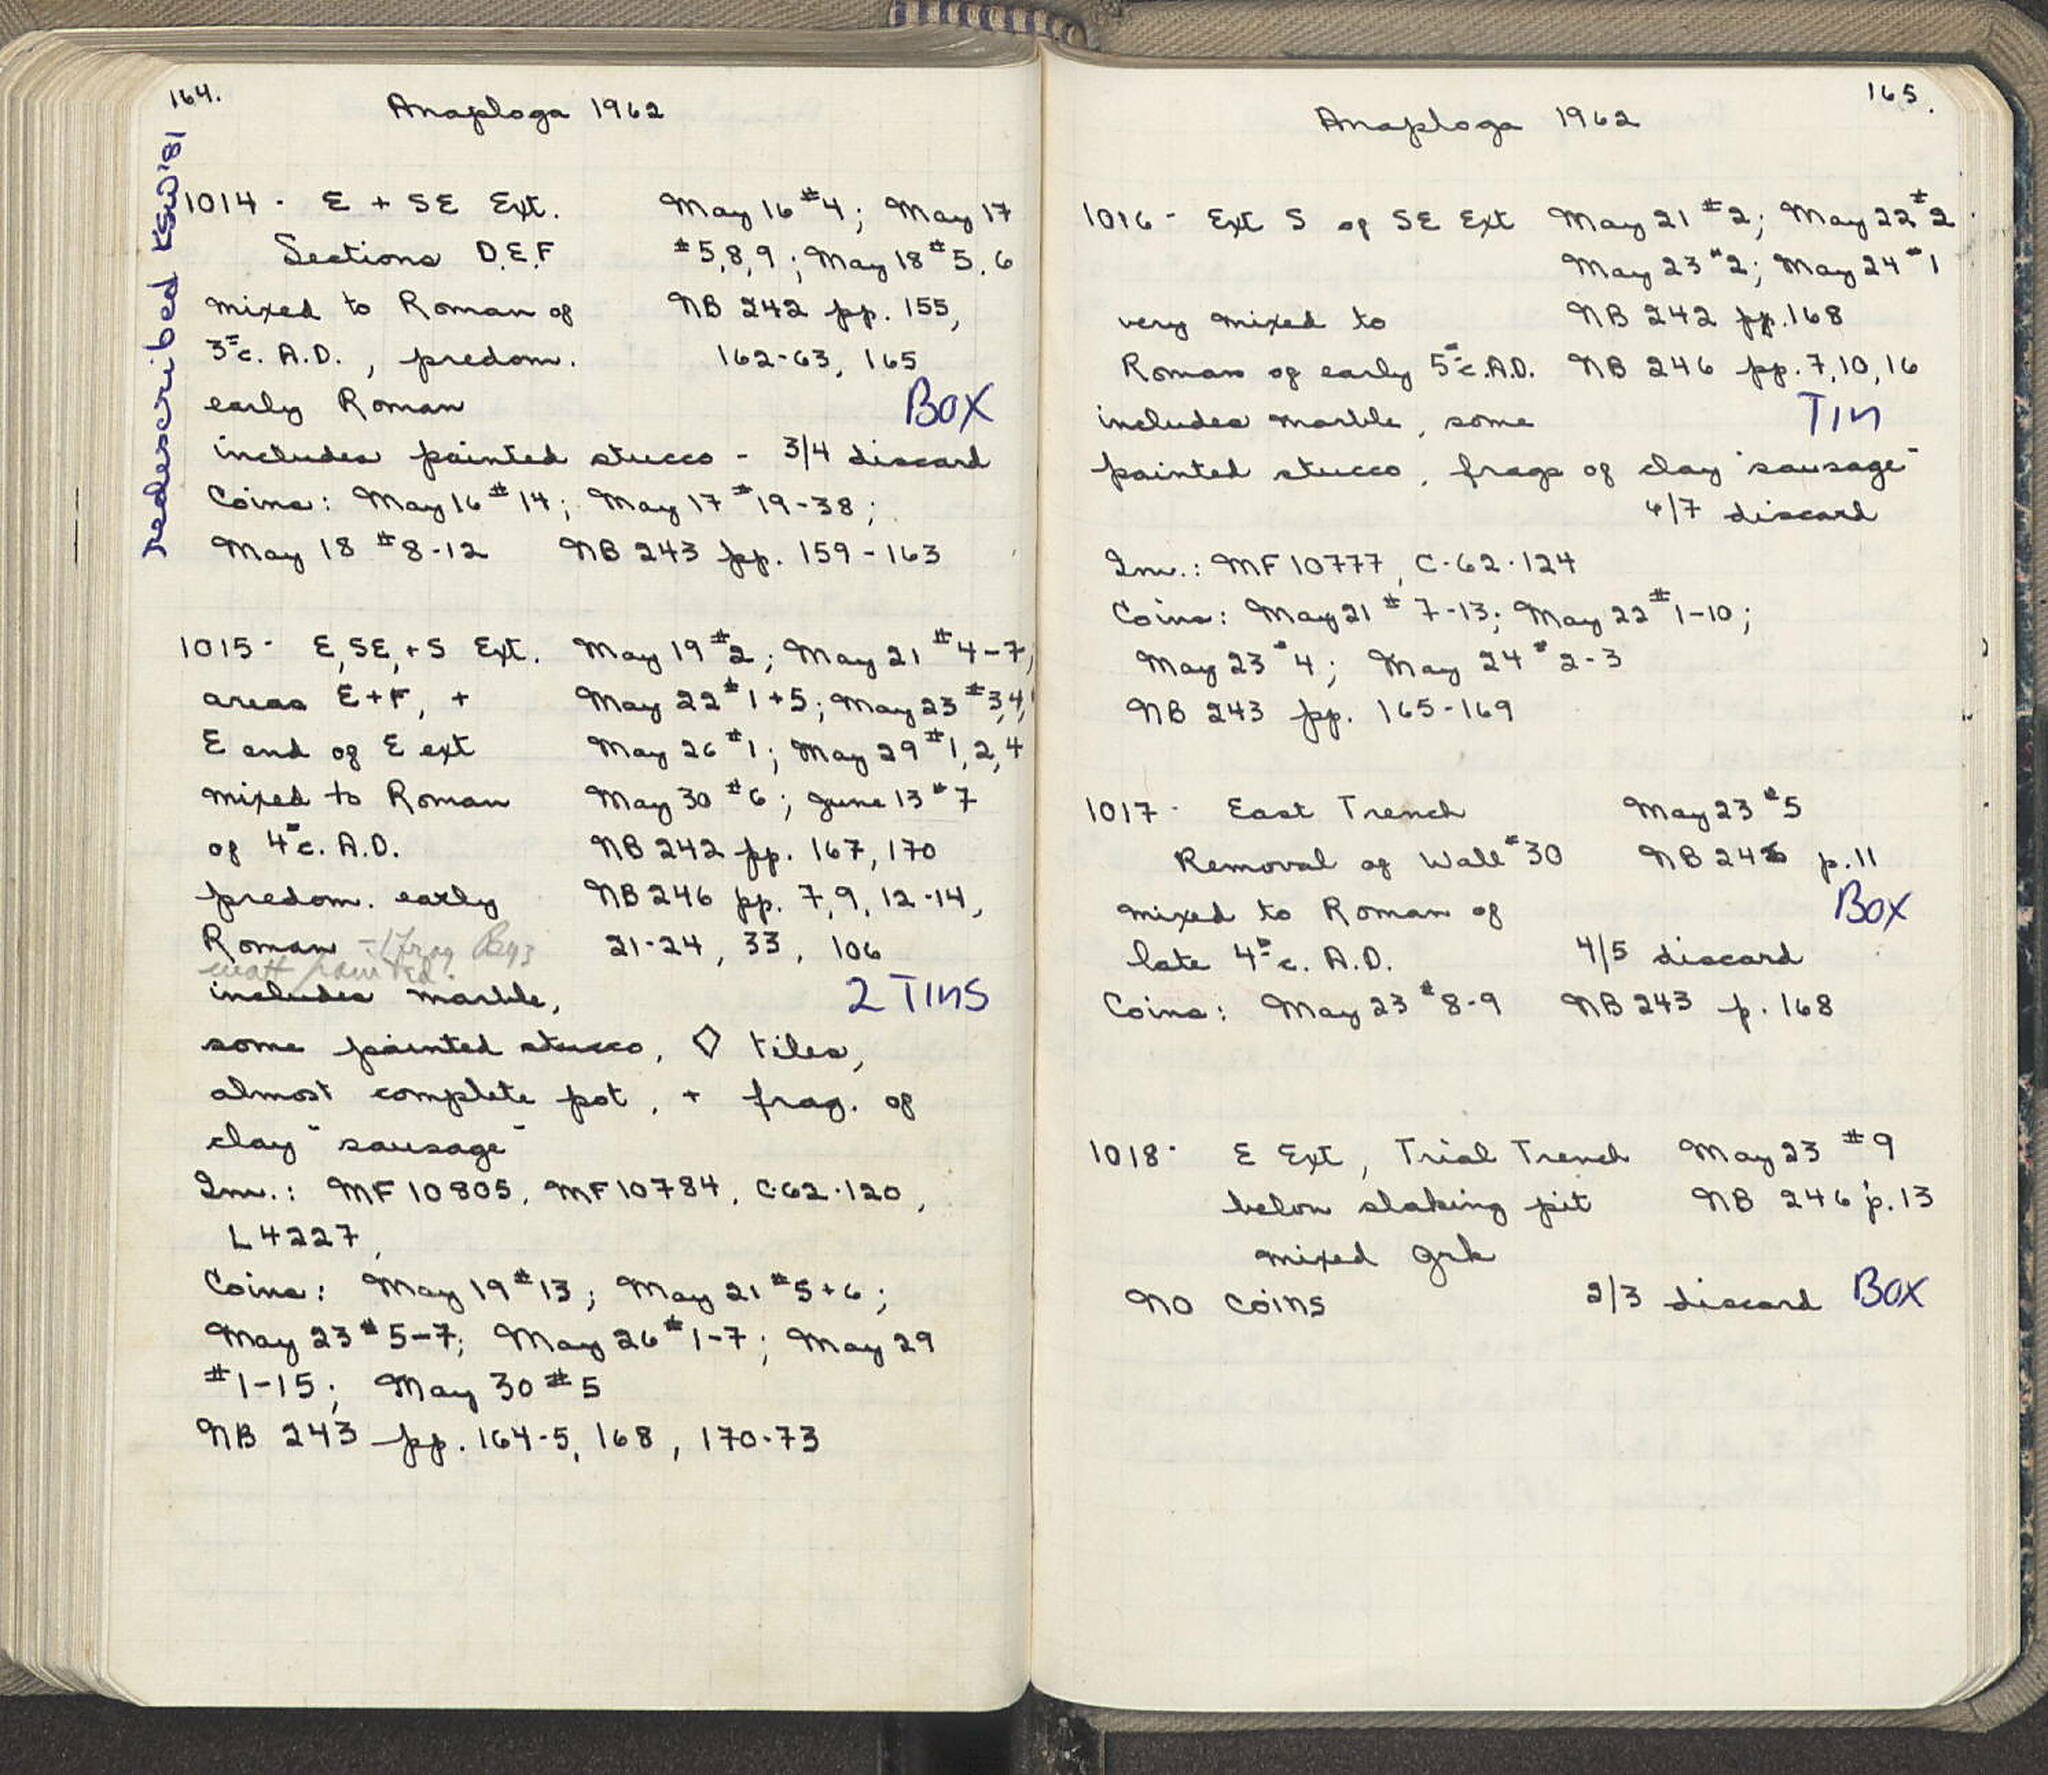 164.
Anaploga 1962
redescribed KSW '81
1014 - E + SE Ext. May 16 #4; May 17
Sections D.E.F #5,8,9; May 18 #5,6
mixed to Roman of NB 242 pp. 155,
3rd c. A.D., predom. 162-63, 165
early Roman BOX
includes painted stucco - 3/4 discard
Coins: May 16 #14; May 17 #19-38;
May 18 #8-12 NB 243 pp. 159-163
1015 - E, SE, + S Ext. May 19 #2; May 21 #4-7,
areas E+F, + May 22 #1+5; May 23 #3,4,
E end of E ext May 26 #1; May 29 #1,2,4
mixed to Roman May 30 #6; June 13 #7
of 4th c. A.D. NB 242 pp. 167, 170
predom. early NB 246 pp. 7, 9, 12-14,
Roman - 1 frag 21-24, 33, 106
matt painted.
includes marble, 2 TINS
some painted stucco, ◇ tiles,
almost complete pot, + frag. of
clay "sausage"
Inv.: MF 10805, MF 10784, C-62-120,
L 4227,
Coins: May 19 #13; May 21 #5+6;
May 23 #5-7; May 26 #1-7; May 29
#1-15; May 30 #5
NB 243 pp. 164-5, 168, 170-73
165.
Anaploga 1962
1016 - Ext S of SE Ext May 21 #2; May 22 #2
May 23 #2; May 24 #1
very mixed to NB 242 pp. 168
Roman of early 5th c. A.D. NB 246 pp. 7, 10, 16
includes marble, some TIN
painted stucco, frags of clay "sausage"
6/7 discard
Inv.: MF 10777, C-62-124
Coins: May 21 #7-13; May 22 #1-10;
May 23 #4; May 24 #2-3
NB 243 pp. 165-169
1017 - East Trench May 23 #5
Removal of Wall #30 NB 246 p. 11
mixed to Roman of BOX
late 4th c. A.D. 4/5 discard
Coins: May 23 #8-9 NB 243 p. 168
1018 - E Ext, Trial Trench May 23 #9
below slaking pit NB 246 p. 13
mixed Grk
NO COINS 2/3 discard BOX